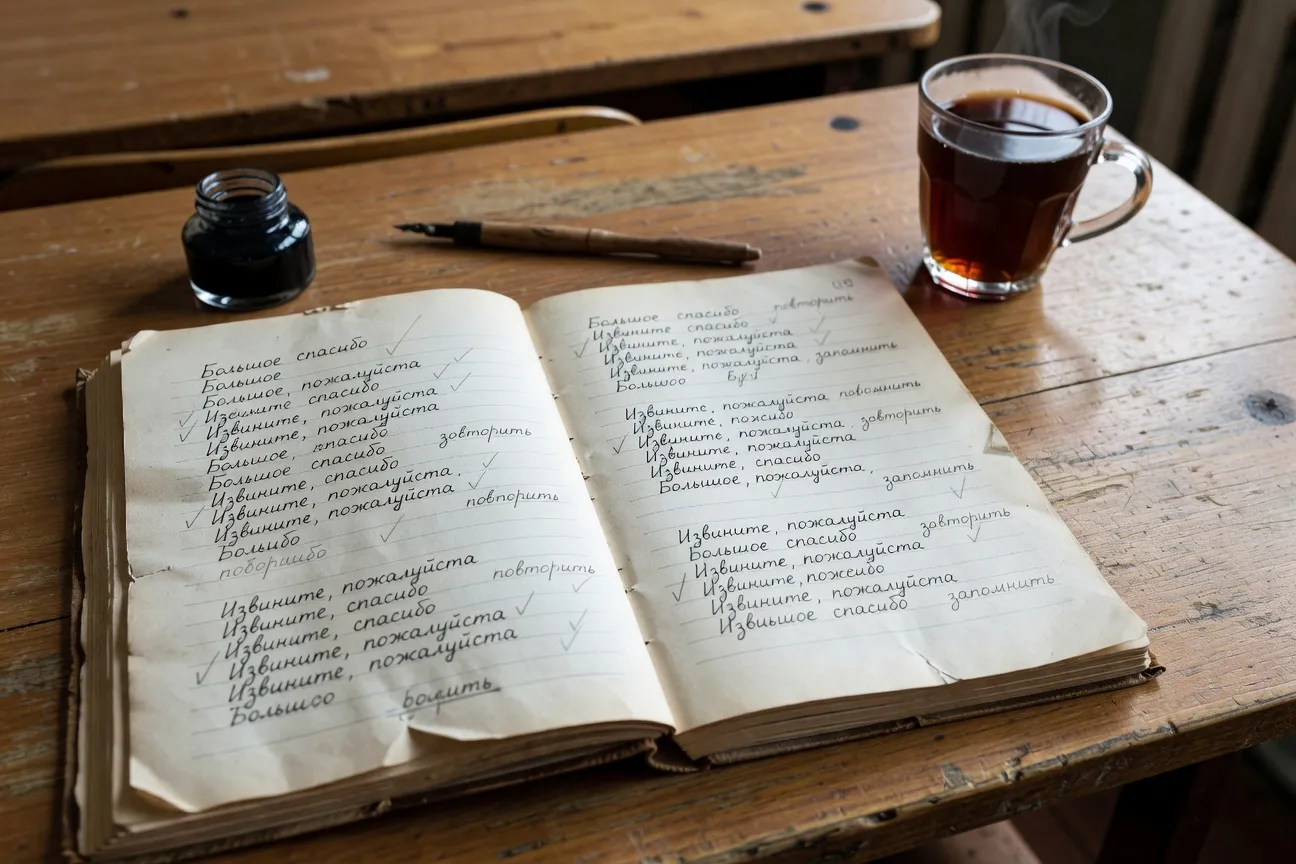 Большое спасибо
Большое
Большое, пожалуйста
спасибо
Извините, пожалуйста
Извините, пожалуйста
Большое, спасибо завторить
Большое спасибо
Извините, спасибо
Извините, пожалуйста.
Извините, пожалуйста повторить
Болыибо
Извините, пожалуйста
Извините, спасибо повторить
Извините, спасибо
Извините, пожалуйста
Извините, пожалуйста
Большое спасибо повторить
Извините спасибо
Извините, пожалуйста
Извините, пожалуйста
Извините, пожалуйста, запомнить
Извините, пожалуйста
Извините, пожсибо
Извините, пожалуйста, завторить
Извините, пожалуйста
Извините, спасибо
Большое, пожалуйста,
запомнить
Извините, пожалуйста
Большое спасибо завторить
Извините, пожалуйста
Извините, пожсибо
Извините, пожалуйста
спасибо запомнить